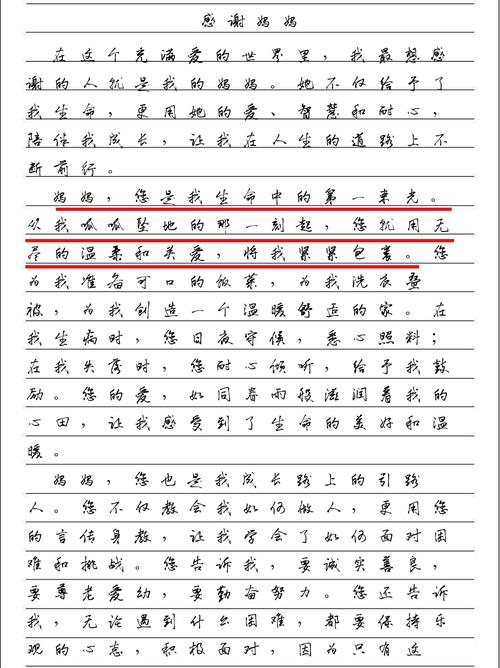 感谢妈妈
在这个充满爱的世界里，我最想感
谢的人就是我的妈妈。她不仅给予了
我生命，更用她的爱、智慧和耐心，
陪伴我成长，让我在人生的道路上不
断前行。
妈妈，您是我生命中的第一束光。
从我呱呱坠地的那一刻起，您就用无
尽的温柔和关爱，将我紧紧包裹。您
为我准备可口的饭菜，为我洗衣叠
被，为我创造一个温暖舒适的家。在
我生病时，您日夜守候，悉心照料；
在我失落时，您耐心倾听，给予我鼓
励。您的爱，如同春雨般滋润着我的
心田，让我感受到了生命的美好和温
暖。
妈妈，您也是我成长路上的引路
人。您不仅教会我如何做人，更用您
的言传身教，让我学会了如何面对困
难和挑战。您告诉我，要诚实善良，
要尊老爱幼，要勤奋努力。您还告诉
我，无论遇到什么困难，都要保持乐
观的心态，积极面对，因为只有这